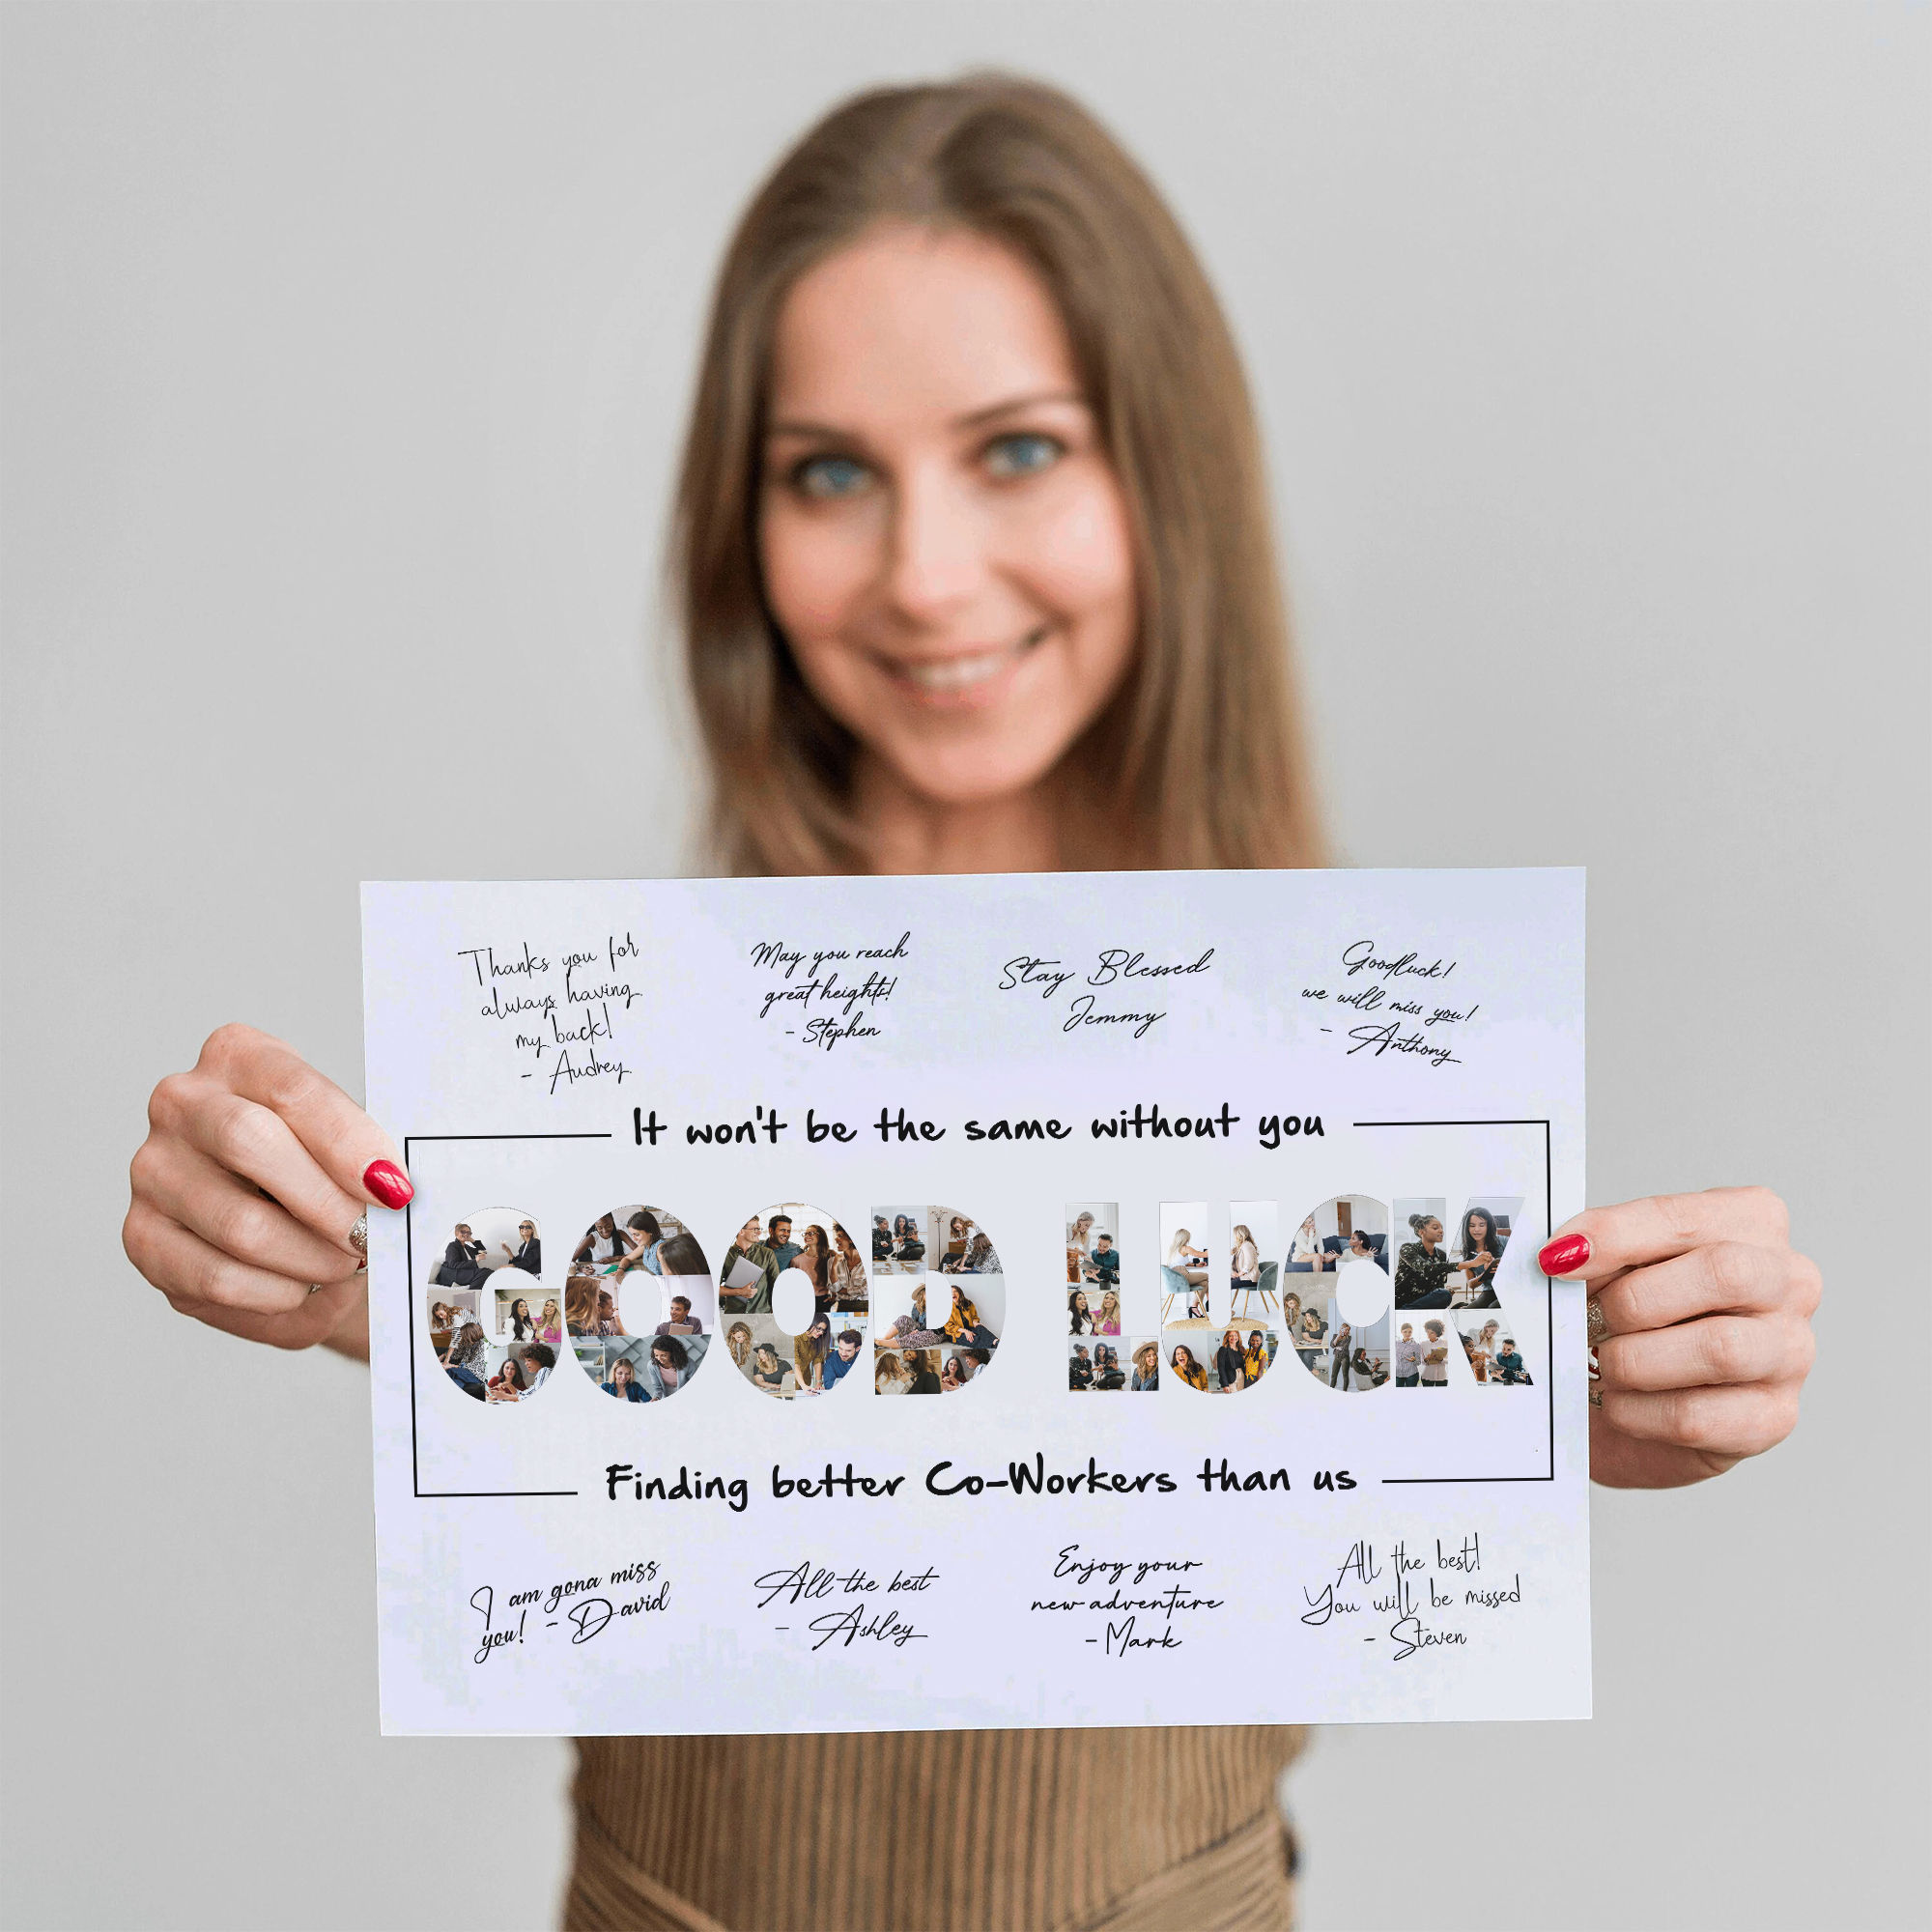 Thanks you for
always having
my back!
- Audrey
May you reach
great heights!
- Stephen
Stay Blessed
Jemmy
Goodluck!
we will miss you!
- Anthony
It won't be the same without you
GOOD LUCK
Finding better Co-Workers than us
I am gona miss
you! - David
All the best
- Ashley
Enjoy your
new adventure
- Mark
All the best!
You will be missed
- Steven